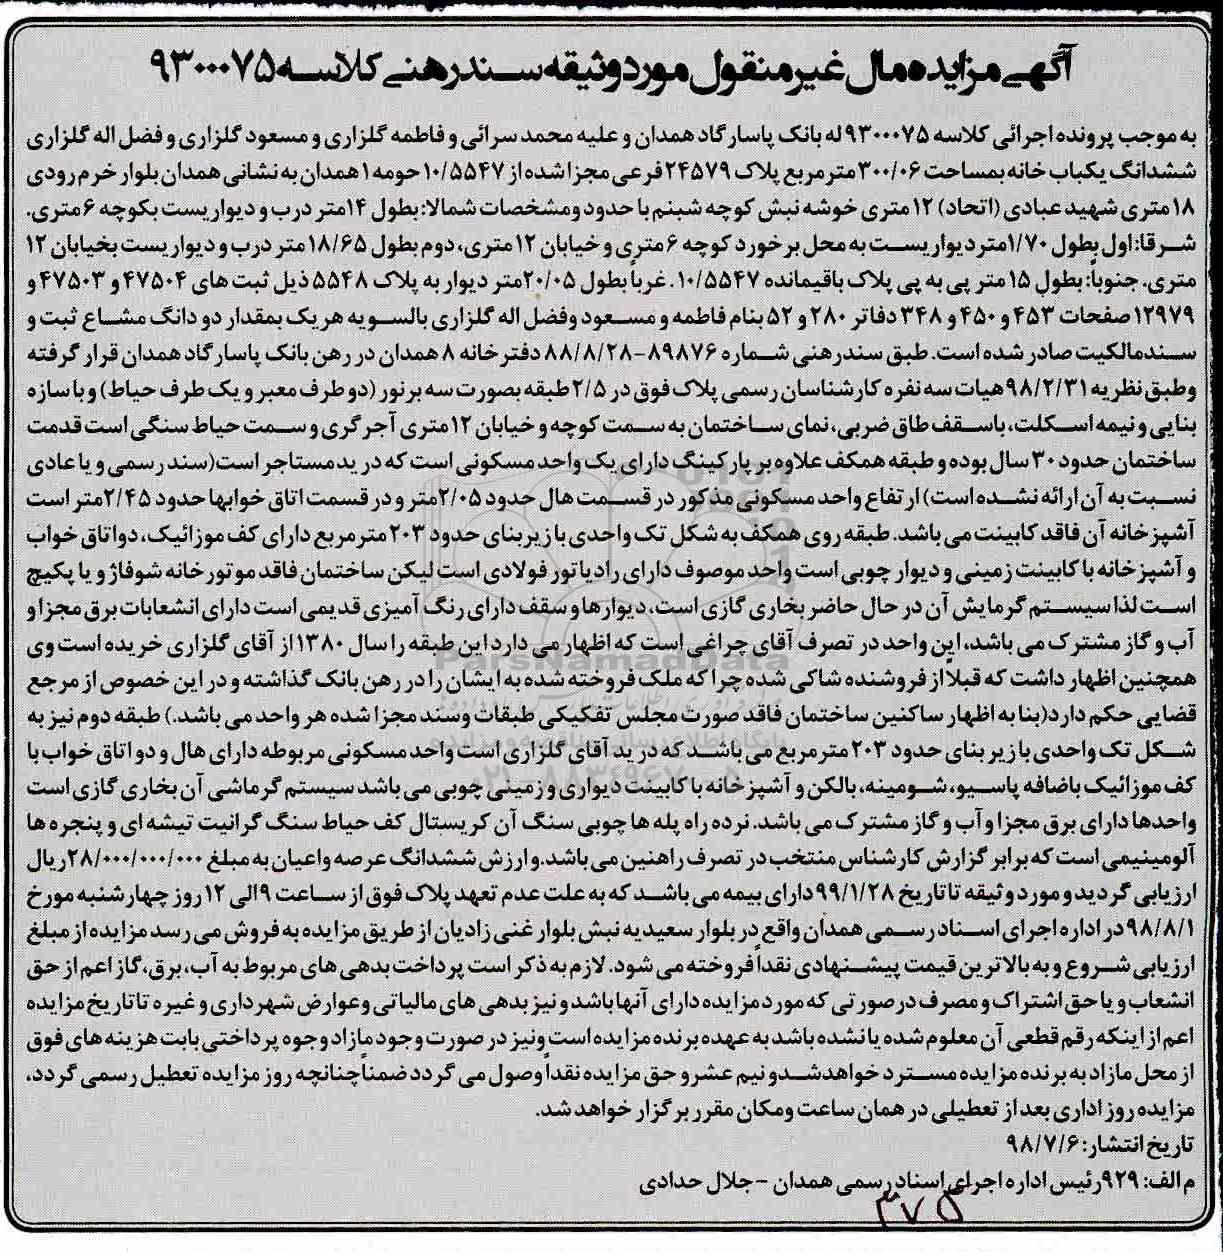 آگهی مزایده مال غیر منقول مورد وثیقه سند رهنی کلاسه ۹۳۰۰۰۷۵
به موجب پرونده اجرائی کلاسه ۹۳۰۰۰۷۵ له بانک پاسارگاد همدان و علیه محمد سرائی و فاطمه گلزاری و مسعود گلزاری و فضل اله گلزاری
ششدانگ یکباب خانه بمساحت ۳۰۰/۰۶ مترمربع پلاک ۲۴۵۷۹ فرعی مجزا شده از ۱۰/۵۵۴۷ حومه ۱ همدان به نشانی همدان بلوار خرم رودی
۱۸ متری شهید عبادی (اتحاد) ۱۲ متری خوشه نبش کوچه شبنم با حدود ومشخصات شمالا: بطول ۱۴ متر درب و دیواریست بکوچه ۶ متری.
شرقا: اول بطول ۱/۷۰ متر دیواریست به محل برخورد کوچه ۶ متری و خیابان ۱۲ متری، دوم بطول ۱۸/۶۵ متر درب و دیواریست بخیابان ۱۲
متری. جنوباً: بطول ۱۵ متر پی به پی پلاک باقیمانده ۱۰/۵۵۴۷. غرباً بطول ۲۰/۰۵ متر دیوار به پلاک ۵۵۴۸ ذیل ثبت های ۴۷۵۰۴ و ۴۷۵۰۳ و
۱۲۹۷۹ صفحات ۴۵۳ و ۴۵۰ و ۳۴۸ دفاتر ۲۸۰ و ۵۲ بنام فاطمه و مسعود وفضل اله گلزاری بالسویه هریک بمقدار دو دانگ مشاع ثبت و
سندمالکیت صادر شده است. طبق سندرهنی شماره ۸۹۸۷۶-۸۸/۸/۲۸ دفترخانه ۸ همدان در رهن بانک پاسارگاد همدان قرار گرفته
وطبق نظریه ۹۸/۲/۳۱ هیات سه نفره کارشناسان رسمی پلاک فوق در ۲/۵ طبقه بصورت سه بر نور (دو طرف معبر و یک طرف حیاط) و با سازه
بنایی و نیمه اسکلت، باسقف طاق ضربی، نمای ساختمان به سمت کوچه و خیابان ۱۲ متری آجر گری و سمت حیاط سنگی است قدمت
ساختمان حدود ۳۰ سال بوده و طبقه همکف علاوه بر پارکینگ دارای یک واحد مسکونی است که در ید مستاجر است(سند رسمی و یا عادی
نسبت به آن ارائه نشده است) ارتفاع واحد مسکونی مذکور در قسمت هال حدود ۲/۰۵ متر و در قسمت اتاق خوابها حدود ۲/۴۵ متر است
آشپزخانه آن فاقد کابینت می باشد. طبقه روی همکف به شکل تک واحدی با زیربنای حدود ۲۰۳ مترمربع دارای کف موزائیک، دواتاق خواب
و آشپزخانه با کابینت زمینی و دیوار چوبی است واحد موصوف دارای رادیاتور فولادی است لیکن ساختمان فاقد موتورخانه شوفاژ و یا پکیج
است لذا سیستم گرمایش آن در حال حاضر بخاری گازی است، دیوارها و سقف دارای رنگ آمیزی قدیمی است دارای انشعابات برق مجزا و
آب و گاز مشترک می باشد، این واحد در تصرف آقای چراغی است که اظهار می دارد این طبقه را سال ۱۳۸۰ از آقای گلزاری خریده است وی
همچنین اظهار داشت که قبلاً از فروشنده شاکی شده چرا که ملک فروخته شده به ایشان را در رهن بانک گذاشته و در این خصوص از مرجع
قضایی حکم دارد(بنا به اظهار ساکنین ساختمان فاقد صورت مجلس تفکیکی طبقات وسند مجزا شده هر واحد می باشد.) طبقه دوم نیز به
شکل تک واحدی با زیر بنای حدود ۲۰۳ مترمربع می باشد که در ید آقای گلزاری است واحد مسکونی مربوطه دارای هال و دو اتاق خواب با
کف موزائیک باضافه پاسیو، شومینه، بالکن و آشپزخانه با کابینت دیواری و زمینی چوبی می باشد سیستم گرمایشی آن بخاری گازی است
واحدها دارای برق مجزا و آب و گاز مشترک می باشد. نرده راه پله ها چوبی سنگ آن کریستال کف حیاط سنگ گرانیت تیشه ای و پنجره ها
آلومینیمی است که برابر گزارش کارشناس منتخب در تصرف راهنین می باشد. و ارزش ششدانگ عرصه واعیان به مبلغ ۲۸/۰۰۰/۰۰۰/۰۰۰ ریال
ارزیابی گردید و مورد وثیقه تا تاریخ ۹۹/۱/۲۸ دارای بیمه می باشد که به علت عدم تعهد پلاک فوق از ساعت ۹ الی ۱۲ روز چهارشنبه مورخ
۹۸/۸/۱ در اداره اجرای اسناد رسمی همدان واقع در بلوار سعیدیه نبش بلوار غنی زادیان از طریق مزایده به فروش می رسد مزایده از مبلغ
ارزیابی شروع و به بالاترین قیمت پیشنهادی نقداً فروخته می شود. لازم به ذکر است پرداخت بدهی های مربوط به آب، برق، گاز اعم از حق
انشعاب و یا حق اشتراک و مصرف درصورتی که مورد مزایده دارای آنها باشد و نیز بدهی های مالیاتی وعوارض شهرداری و غیره تا تاریخ مزایده
اعم از اینکه رقم قطعی آن معلوم شده یا نشده باشد به عهده برنده مزایده است ونیز در صورت وجود مازاد وجوه پرداختی بابت هزینه های فوق
از محل مازاد به برنده مزایده مسترد خواهدشد و نیم عشر و حق مزایده نقداً وصول می گردد ضمناً چنانچه روز مزایده تعطیل رسمی گردد،
مزایده روز اداری بعد از تعطیلی در همان ساعت ومکان مقرر برگزار خواهد شد.
تاریخ انتشار: ۹۸/۷/۶
م الف: ۹۲۹ رئیس اداره اجرای اسناد رسمی همدان - جلال حدادی
۳۷۵
ParsNamadData
پایگاه اطلاع رسانی مناقصه و مزایده
۰۲۱-۸۸۳۴۹۶۷۰-۵